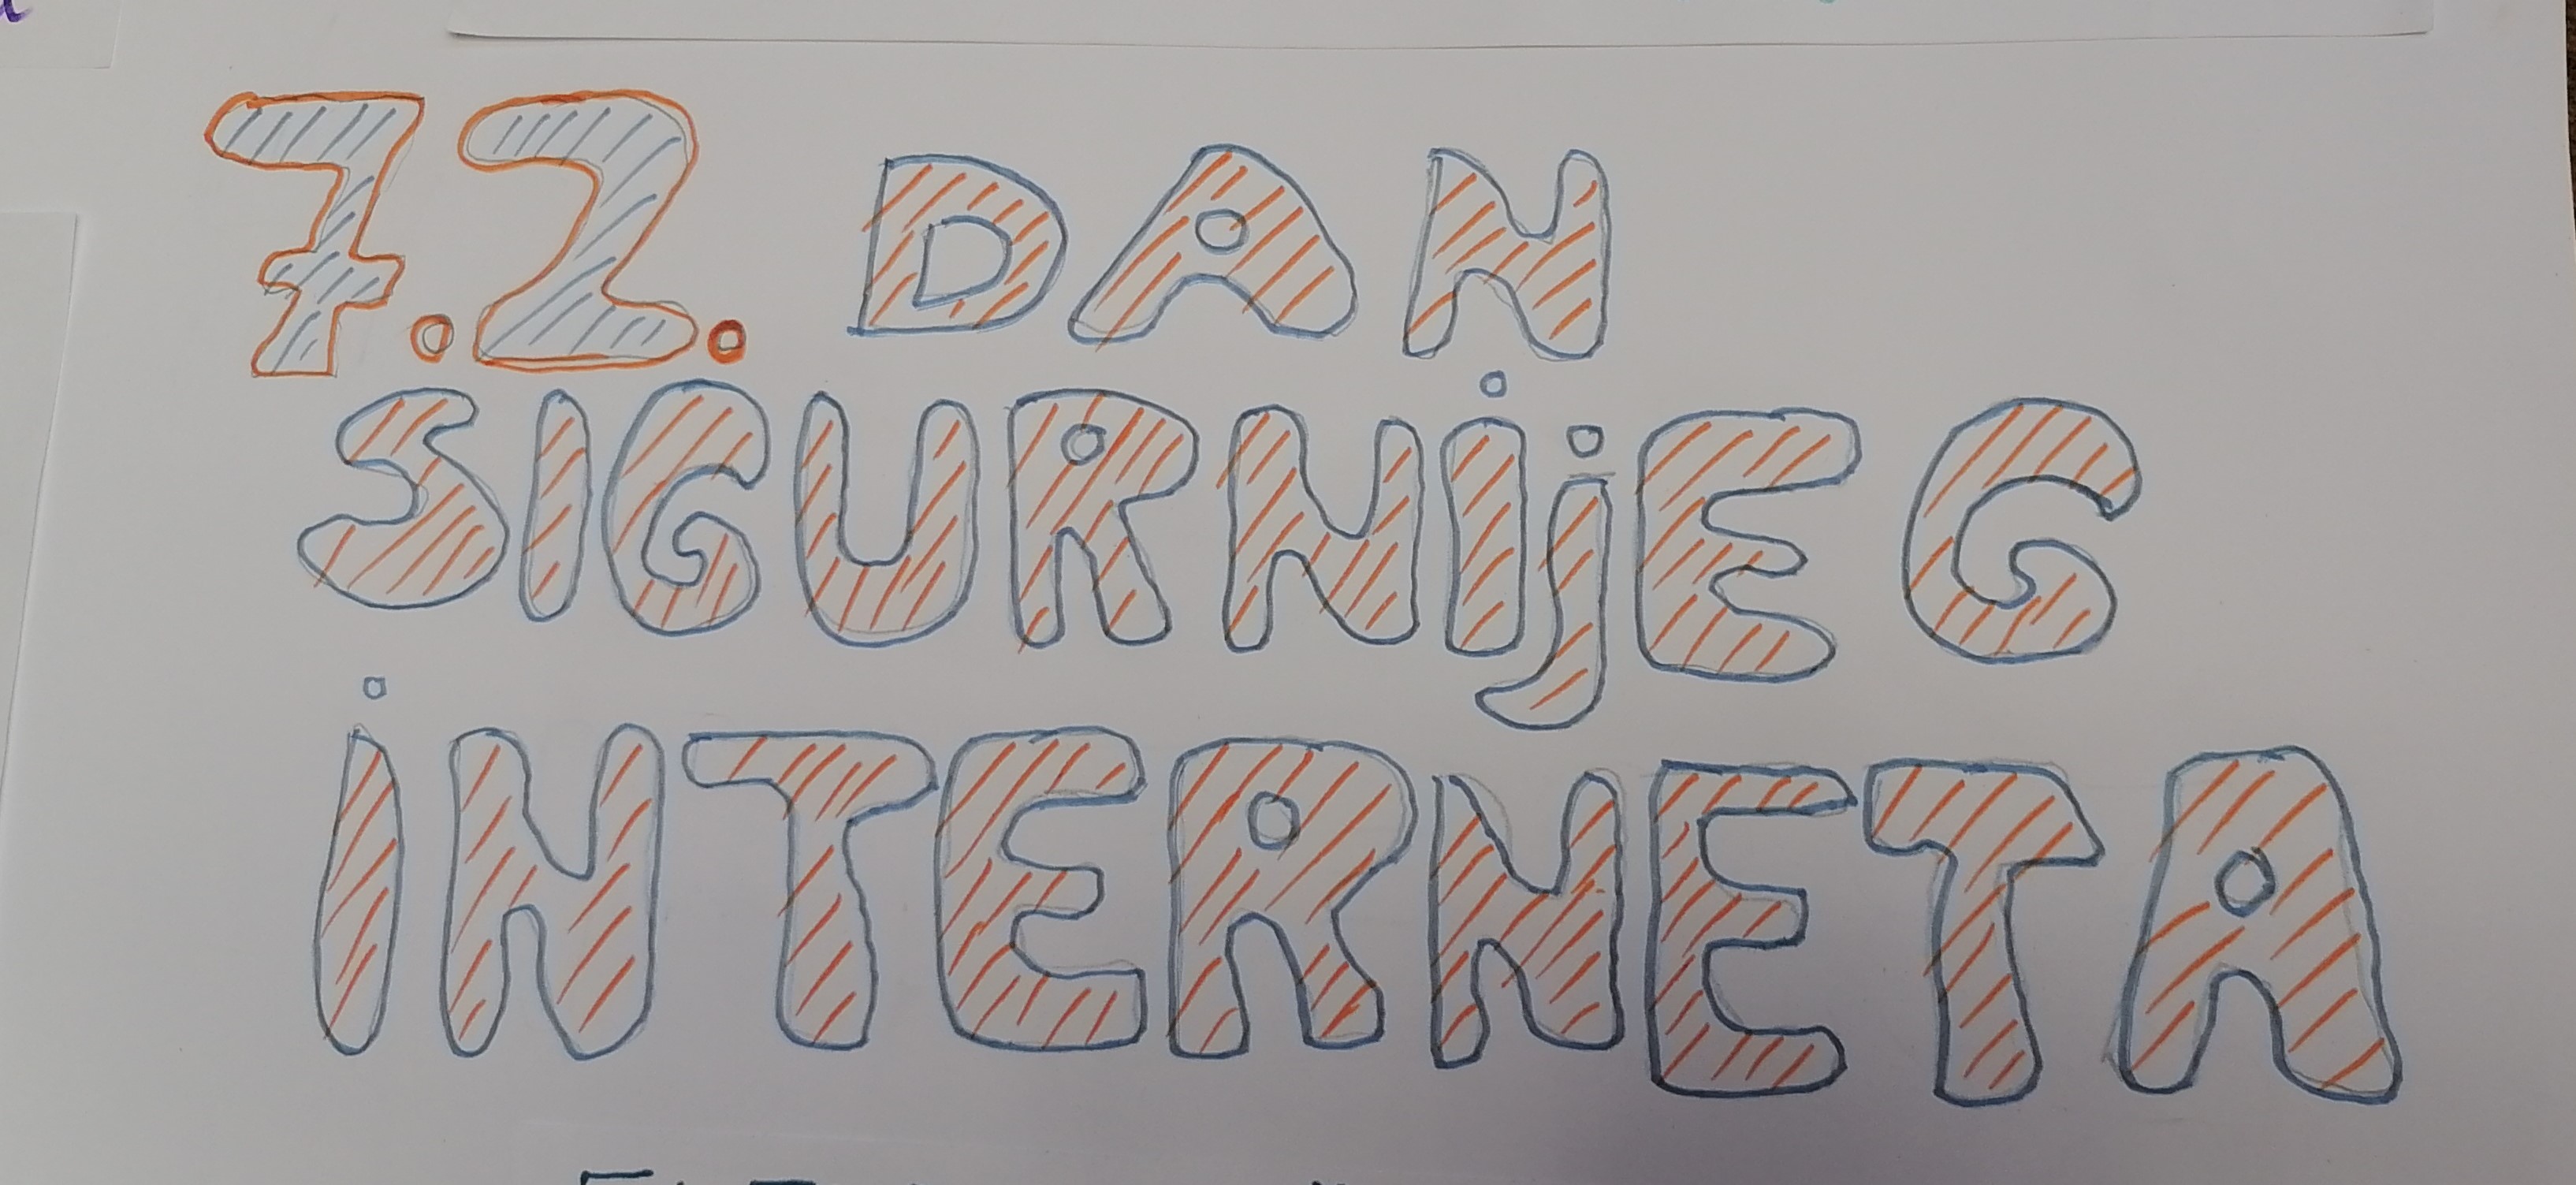 7.2. DAN
SIGURNIjEG
iNTERNETA